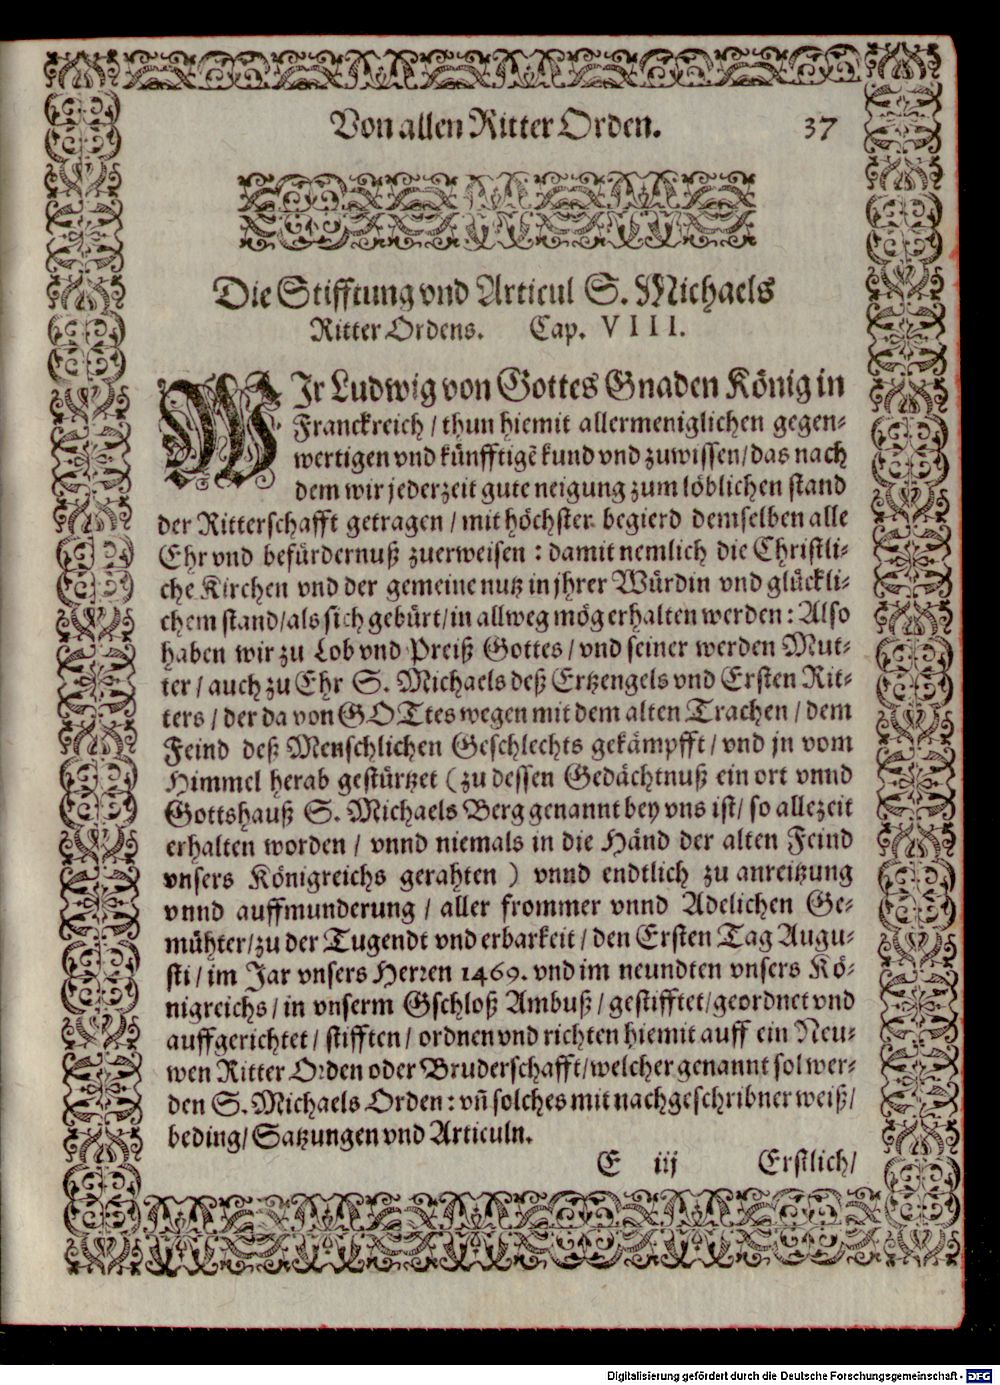 Von allen Ritter Orden. 37
Die Stifftung vnd Articul S. Michaels
Ritter Ordens. Cap. VIII.
WIr Ludwig von Gottes Gnaden König in
Franckreich / thun hiemit allermeniglichen gegen⸗
wertigen vnd künfftigẽ kund vnd zuwissen / das nach
dem wir jederzeit gute neigung zum löblichen stand
der Ritterschafft getragen / mit höchster begierd demselben alle
Ehr vnd befürdernuß zuerweisen : damit nemlich die Christli⸗
che Kirchen vnd der gemeine nutz in jhrer Würdin vnd glückli⸗
chem stand / als sich gebürt / in allweg mög erhalten werden : Also
haben wir zu Lob vnd Preiß Gottes / vnd seiner werden Mut⸗
ter / auch zu Ehr S. Michaels deß Ertzengels vnd Ersten Rit⸗
ters / der da von GOTtes wegen mit dem alten Trachen / dem
Feind deß Menschlichen Geschlechts gekämpfft / vnd jn vom
Himmel herab gestürtzet ( zu dessen Gedächtnuß ein ort vnnd
Gottshauß S. Michaels Berg genannt bey vns ist / so allezeit
erhalten worden / vnnd niemals in die Händ der alten Feind
vnsers Königreichs gerahten ) vnnd endtlich zu anreitzung
vnnd auffmunderung / aller frommer vnnd Adelichen Ge⸗
mühter / zu der Tugendt vnd erbarkeit / den Ersten Tag Augu⸗
sti / im Jar vnsers Herren 1469. vnd im neundten vnsers Kö⸗
nigreichs / in vnserm Gschloß Ambuß / gestifftet / geordnet vnd
auffgerichtet / stifften / ordnen vnd richten hiemit auff ein Neu⸗
wen Ritter Orden oder Bruderschafft / welcher genannt sol wer⸗
den S. Michaels Orden : vñ solches mit nachgeschribner weiß /
beding / Satzungen vnd Articuln.
E iij Erstlich /
Digitalisierung gefördert durch die Deutsche Forschungsgemeinschaft - DFG